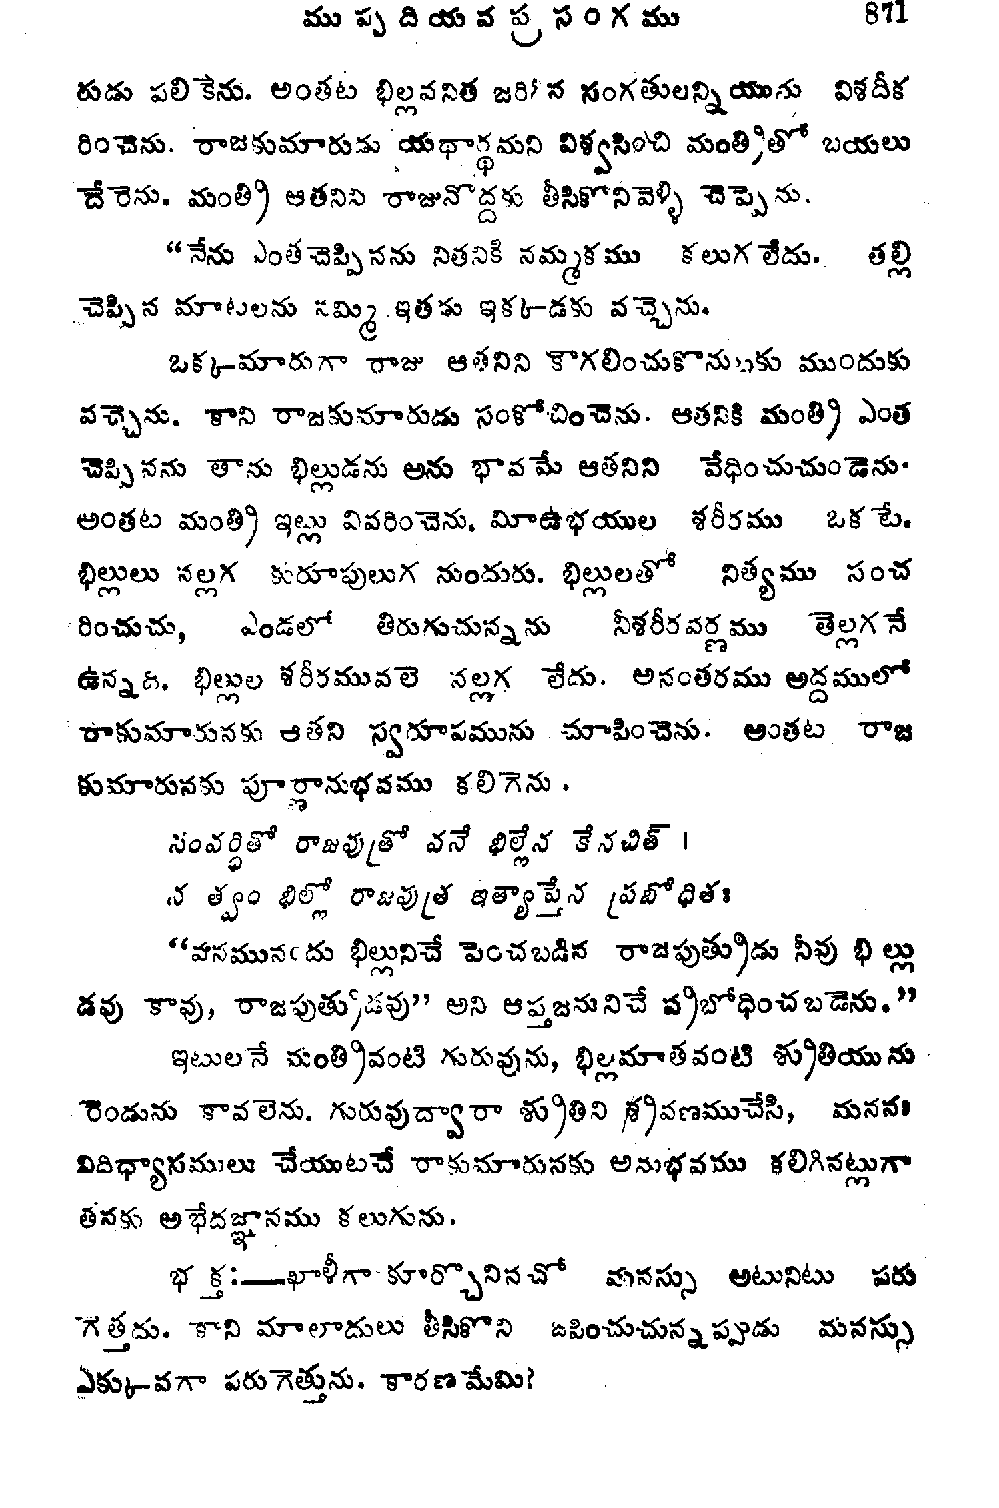 ముప్పదియవ ప్రసంగము 871
రుడు పలికేను. అంతట భిల్లవనిత జరిగిన సంగతులన్నియును విశదీక
రించెను. రాజకుమారుడు యథార్థమని విశ్వసించి మంత్రితో బయలు
దేరెను. మంత్రి ఆతనిని రాజునొద్దకు తీసికొనివెళ్ళి చెప్పెను.
“నేను ఎంతచెప్పినను నితనికి నమ్మకము కలుగలేదు. తల్లి
చెప్పిన మాటలను నమ్మి ఇతడు ఇక్కడకు వచ్చెను.
ఒక్కమారుగా రాజు ఆతనిని కౌగలించుకొనుటకు ముందుకు
వచ్చెను. కాని రాజకుమారుడు సంకోచించెను. ఆతనికి మంత్రి ఎంత
చెప్పినను తాను భిల్లుడను అను భావమే ఆతనిని వేధించుచుండెను.
అంతట మంత్రి ఇట్లు వివరించెను. మీఉభయుల శరీరము ఒకటే.
భిల్లులు నల్లగ కురూపులుగ నుందురు. భిల్లులతో నిత్యము సంచ
రించుచు, ఎండలో తిరుగుచున్నను నీశరీరవర్ణము తెల్లగనే
ఉన్నది. భిల్లుల శరీరమువలె నల్లగ లేదు. అనంతరము అద్దములో
రాకుమారునకు ఆతని స్వరూపమును చూపించెను. అంతట రాజ
కుమారునకు పూర్ణానుభవము కలిగెను.
సంవర్ధితో రాజపుత్రో వనే భిల్లేన కేనచిత్ ।
న త్వం భిల్లో రాజపుత్ర ఇత్యాప్తేన ప్రబోధితః
“వనమునఁదు భిల్లునిచే పెంచబడిన రాజపుత్రుడు నీవు భిల్లు
డవు కావు, రాజపుత్రుడవు” అని ఆప్తజనునిచే ప్రబోధించబడెను.”
ఇటులనే మంత్రివంటి గురువును, భిల్లమాతవంటి శ్రుతియును
రెండును కావలెను. గురువుద్వారా శ్రుతిని శ్రవణముచేసి, మనన
నిదిధ్యాసములు చేయుటచే రాకుమారునకు అనుభవము కలిగినట్లుగా
తనకు అభేదజ్ఞానము కలుగును.
భక్త:—ఖాళీగా కూర్చొనినచో మనస్సు అటునిటు పరు
గెత్తదు. కాని మాలాదులు తీసికొని జపించుచున్నప్పుడు మనస్సు
ఎక్కువగా పరుగెత్తును. కారణమేమి?